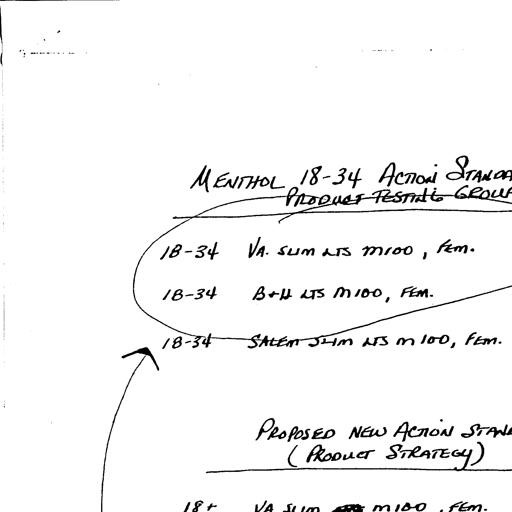 MENTHOL 18-34 ACTION STANDA
PRODUCT TESTING GROUP
18-34 VA. SLIM LTS M100, FEM.
18-34 B+H LTS M100, FEM.
18-34 SALEM SLIM LTS M100, FEM.
PROPOSED NEW ACTION STAN
(PRODUCT STRATEGY)
18+ VA SLIM M100, FEM.